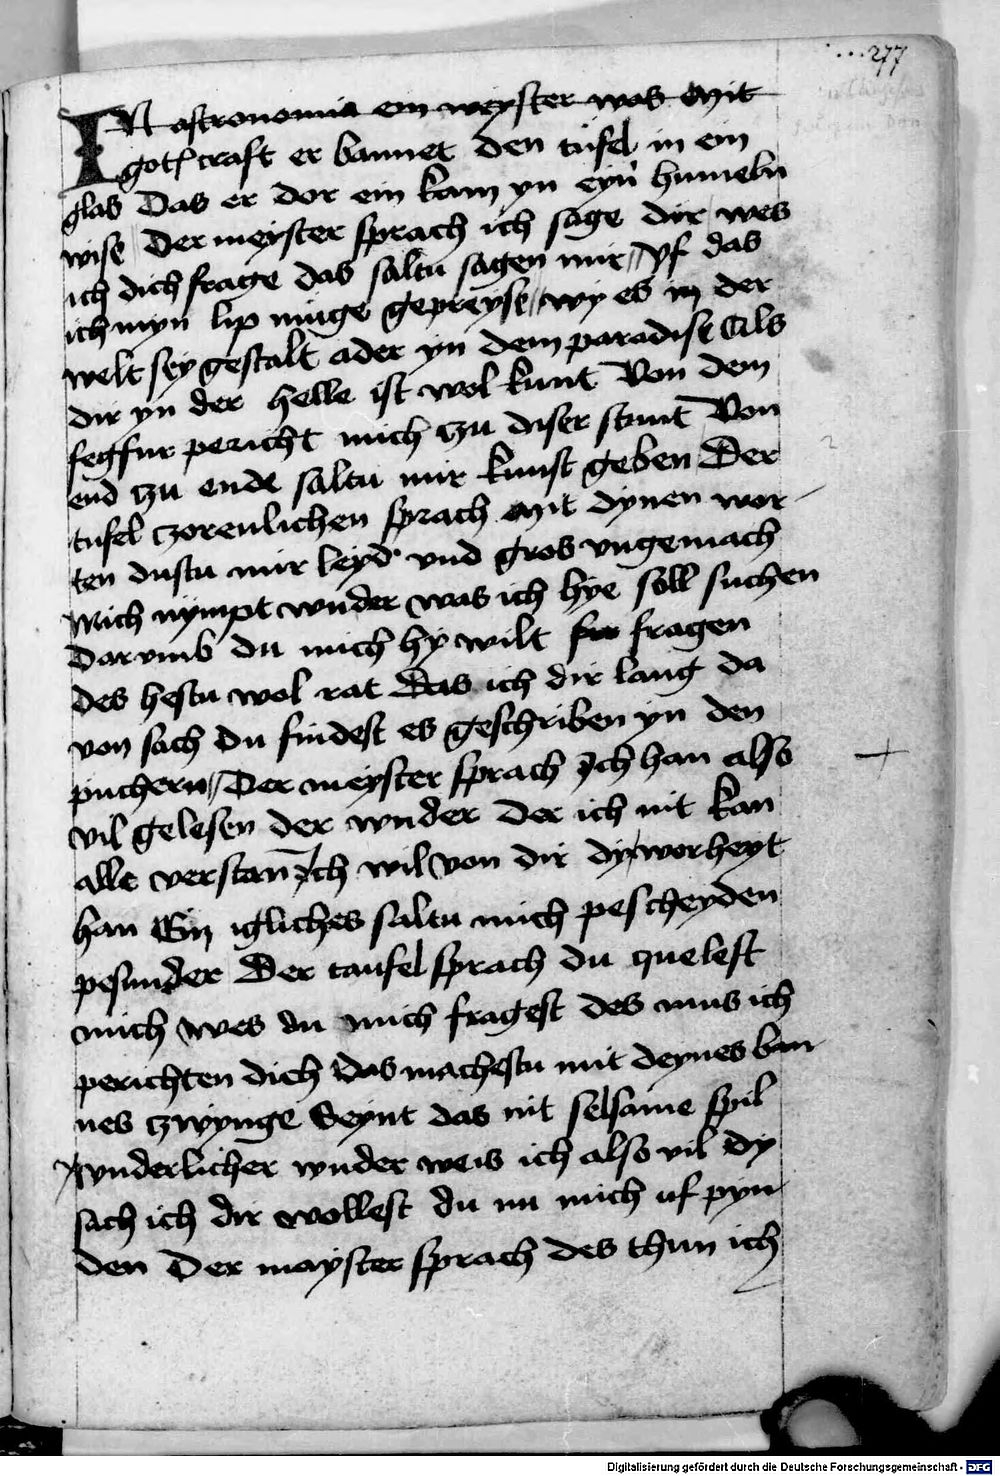 277
IN astronomia ein meyster was Mit
gotſ craft er bannet den tüfel in ein
glas Das er dor ein kam yn eyn humeln
wise Der meyster sprach ich sage dyr wes
ich dich frage das saltu sagen mir // Vf das
ich myn lip muge gepreyse // wy es in der
welt sey gestalt ader yn dem paradise Als
dir yn der helle ist wol kunt Von dem
fegfur pericht mich czu diser stunt Von
end czu ende saltu mir kunst geben Der
tufel czorenlichen sprach Mit dynen wor
ten dustu mir leyd vnd gros vngemach
Mich nympt wnder was ich hye soll suchen
Darvmb du mich hy wilt fragen
des hestu wol rat Das ich dir lang da
von sach Du findest es geschriben yn den
puchern // Der meyster sprach Ich han also
vil gelesen der wnder Der ich nit kan
alle verstan Ich wil von dir dy worheyt
han Ein igliches saltu mich pescheyden
pesunder Der taufel sprach du czuelest
mich wes du mich fragest des mus ich
perichten dich Das machestu mit deynes ban
nes czwynge Seynt das nit selsame spil
wnderlicher wnder weis ich also vil Dy
sach ich dir wollest du nu mich uf pyn
den Der mayster sprach des thun ich
Digitalisierung gefördert durch die Deutsche Forschungsgemeinschaft - DFG